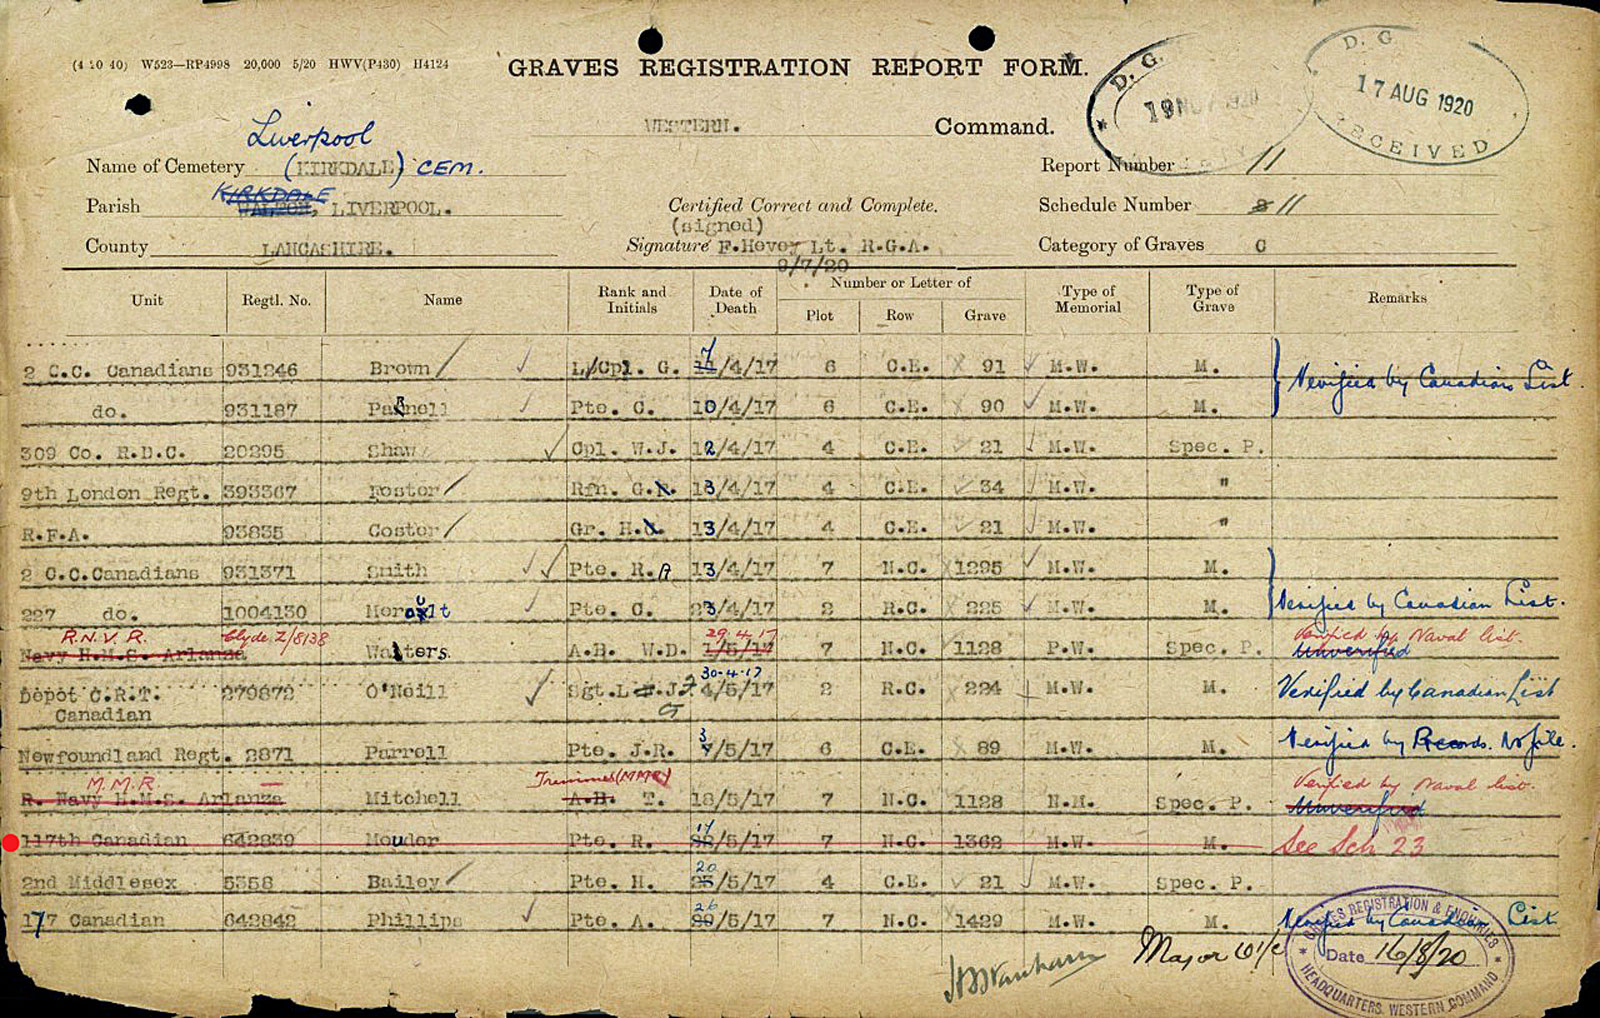 (4 10 40) W523—RP4998 20,000 5/20 HWV(P430) H4124
GRAVES REGISTRATION REPORT FORM.
D. G.
19 NOV 1920
D. G.
17 AUG 1920
RECEIVED
WESTERN. Command.
Liverpool
Name of Cemetery (KIRKDALE) CEM.
Report Number 11
KIRKDALE
Parish WALTON, LIVERPOOL.
Certified Correct and Complete.
Schedule Number 11
(signed)
County LANCASHIRE.
Signature F.Hevey Lt. R.G.A.
Category of Graves C
9/7/20
Unit Regtl. No. Name Rank and Initials Date of Death Number or Letter of Plot Row Grave Type of Memorial Type of Grave Remarks
2 C.C. Canadians 931246 Brown L/Cpl. G. 7/4/17 6 C.E. 91 M.W. M. Verified by Canadian List.
do. 931187 Parnell Pte. C. 10/4/17 6 C.E. 90 M.W. M.
309 Co. R.D.C. 20295 Shaw Cpl. W.J. 12/4/17 4 C.E. 21 M.W. Spec. P.
9th London Regt. 393367 Foster Rfn. G. 13/4/17 4 C.E. 34 M.W. "
R.F.A. 93835 Coster Gr. H. 13/4/17 4 C.E. 21 M.W. "
2 C.C.Canadians 931371 Smith Pte. R.A 13/4/17 7 N.C. 1295 M.W. M.
227 do. 1004130 Pte. C. 23/4/17 2 R.C. 225 M.W. M. Verified by Canadian List.
R.N.V.R. Clyde Z/8138 29.4.17 Verified by Naval list.
Navy H.M.S. Arlanza Walters A.B. W.D. 1/5/17 7 N.C. 1128 P.W. Spec. P. Unverified
30-4-17
Depot C.R.T. 279872 O'Neill Sgt. 4/5/17 2 R.C. 224 M.W. M. Verified by Canadian List
Canadian
Newfoundland Regt. 2871 Parrell Pte. J.R. 3/5/17 6 C.E. 89 M.W. M. Verified by Records. No file.
M.M.R Trimmer (MMR) Verified by Naval list.
R. Navy H.M.S. Arlanza Mitchell A.B. T. 18/5/17 7 N.C. 1128 N.M. Spec. P. Unverified
117th Canadian 642839 Mouder Pte. R. /5/17 7 N.C. 1362 M.W. M. See Sch 23
20
2nd Middlesex 5358 Bailey Pte. H. 23/5/17 4 C.E. 21 M.W. Spec. P.
26
177 Canadian 642842 Phillips Pte. A. /5/17 7 N.C. 1429 M.W. M. Verified by Canadian List
Major
GRAVES REGISTRATION & ENQUIRIES
Date 16/8/20
HEADQUARTERS, WESTERN COMMAND